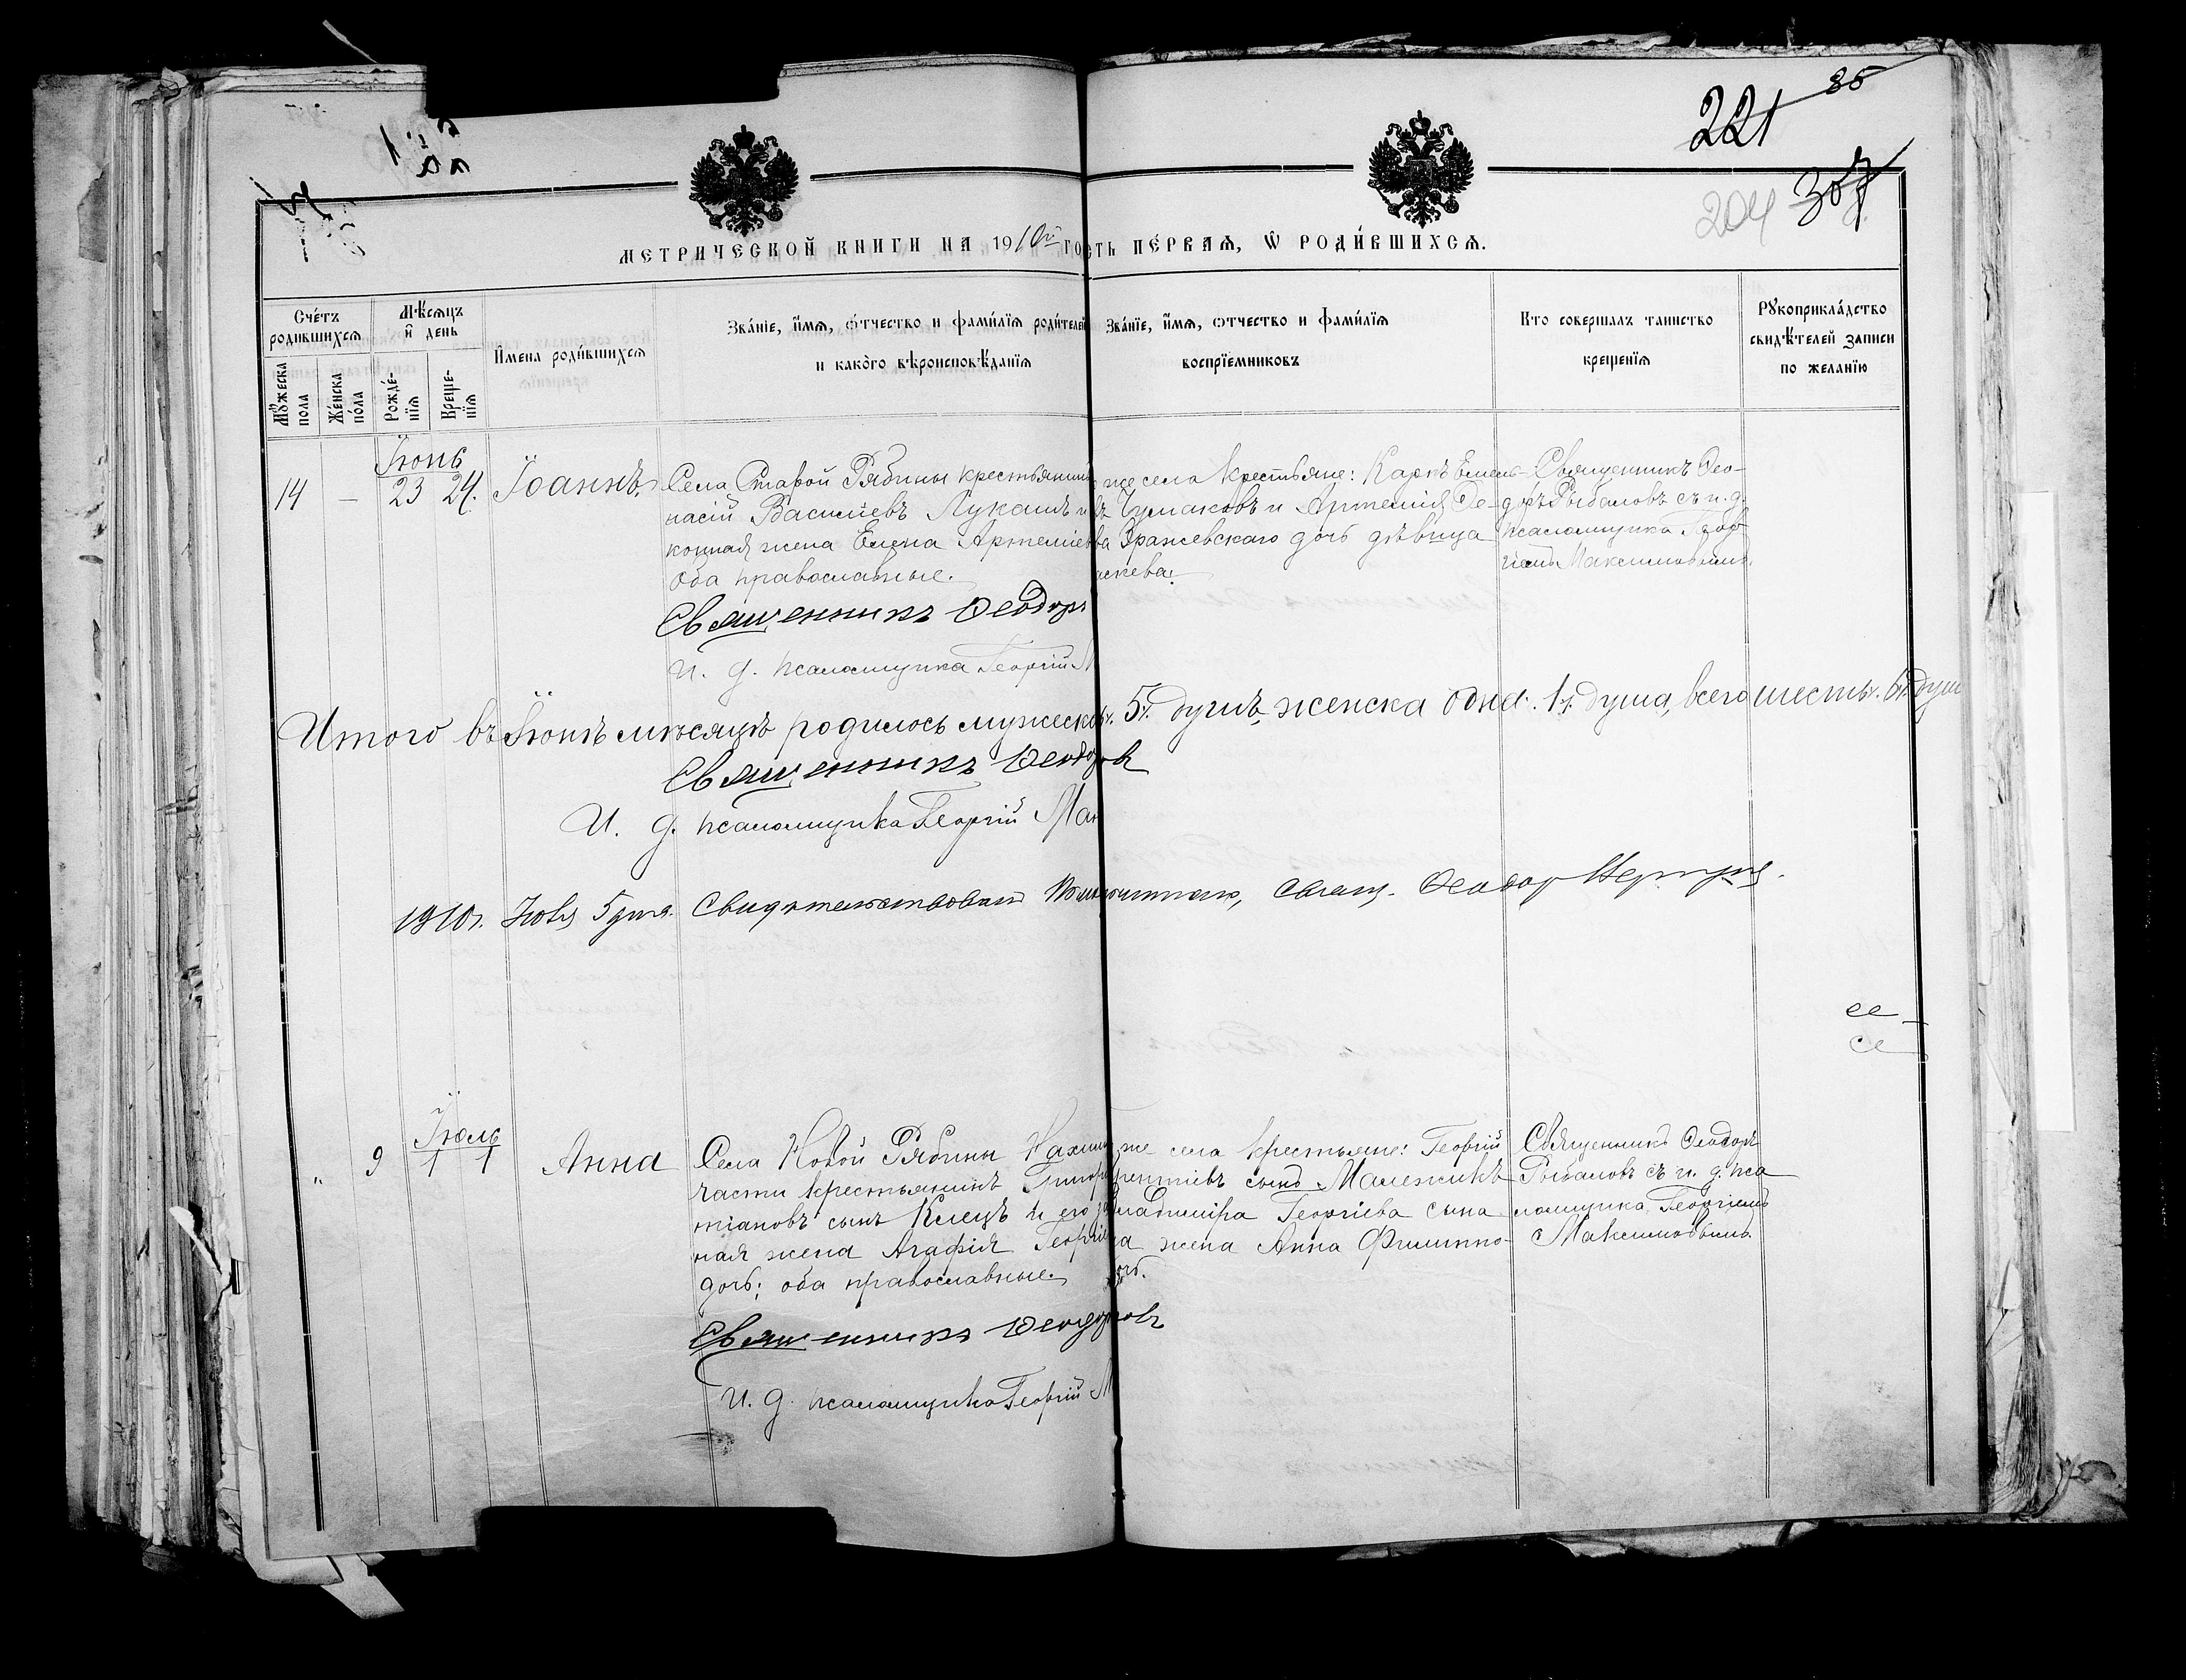 221 85
204 307
МЕТРИЧЕСКОЙ КНИГИ НА 1910й ГОСТЬ ПЕ́РВАѦ, Ѿ РОДИ́ВШИХСѦ.
Сче́тъ родившихсѧ
Мꙋ́жеска пола
Же́нска по́ла
Мѣ́сѧцъ и҆ день
Рожде́-нїѧ
Креще-нїѧ
И҆мена роди́вшихсѧ
Зва́нїе, и҆́мѧ, ѻ҆́тчество и фами́лїѧ роди́телей
и како́го вѣроисповѣ́данїѧ
Зва́нїе, и҆́мѧ, ѻтчество и фами́лїѧ
воспрїемниковъ
Кто совершалъ таинство
крещенїѧ
Рꙋкоприкла́дство
свидѣ́телей записи
по желанїю
Іюнь
14 — 23 24. Іоаннъ.
Села Старой Рябины крестьянинъ
насій Васильевъ Лукашъ и
конная жена Елена Артеміева
Оба православные.
же села крестьяне: Карпъ Емель-
въ Чумаковъ и Артемія Ѳе-
Вражевскаго дочь дѣвица
аскева.
Священникъ Ѳео-
доръ Рыбаловъ съ и. д.
псаломщика Геор-
гіемъ Максимовымъ.
Священникъ Ѳеодоръ
И. д. псаломщика Георгій М
Итого въ Іюнѣ мѣсяцѣ родилось мужеска. 5. душъ, женска одна. 1. душа, всего шесть. 6. душ
Священникъ Ѳеодоровъ
И. д. псаломщика Георгій Мак
1910г. Іюля 5 дня. Свидѣтельствовалъ священ. Ѳеодор
Іюль
" 9 1 1 Анна
Села Новой Рябины
части крестьянинъ Григор
тіановъ сынъ Клецъ и его за
ная жена Агафія Георгіева
дочь; оба православные.
же села крестьяне: Георгій
рентіевъ сынъ Малежикъ
Владиміра Георгіева сына
жена Анна Филиппо-
дочь.
Священникъ Ѳеодоръ
Рыбаловъ съ и. д. пса
ломщика Георгіемъ
Максимовымъ
Священникъ Ѳеодоровъ
И. д. псаломщика Георгій М